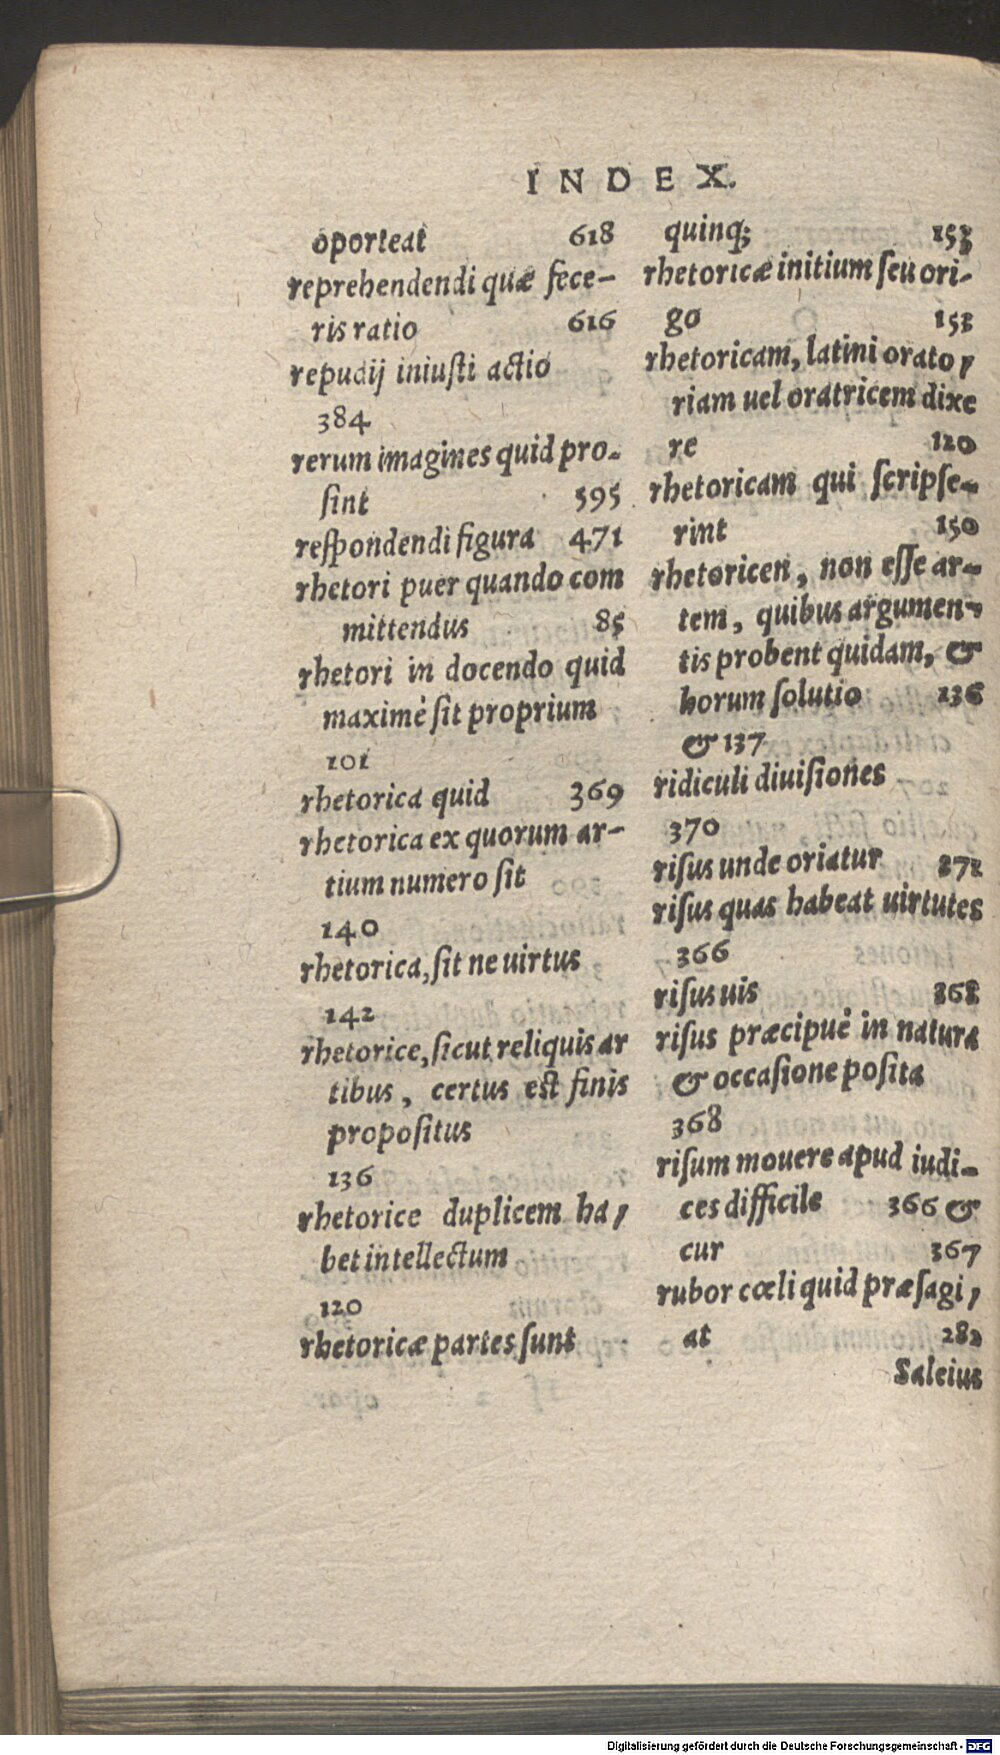 INDEX.
oporteat 618
reprehendendi quæ fece-
ris ratio 616
repudij iniuſti actio
384
rerum imagines quid pro-
ſint 595
reſpondendi figura 471
rhetori puer quando com
mittendus 85
rhetori in docendo quid
maximè ſit proprium
101
rhetorica quid 369
rhetorica ex quorum ar-
tium numero ſit
140
rhetorica, ſit ne uirtus
142
rhetorice, ſicut reliquis ar
tibus, certus eſt finis
propoſitus
136
rhetorice duplicem ha,
bet intellectum
120
rhetoricæ partes ſunt
quinq; 153
rhetoricæ initium ſeu ori-
go 152
rhetoricam, latini orato,
riam uel oratricem dixe
re 120
rhetoricam qui ſcripſe-
rint 150
rhetoricen, non eſſe ar-
tem, quibus argumen-
tis probent quidam, &
horum ſolutio 136
& 137
ridiculi diuiſiones
370
riſus unde oriatur 372
riſus quas habeat uirtutes
366
riſus uis 368
riſus præcipuè in natura
& occaſione poſita
368
riſum mouere apud iudi-
ces difficile 366 &
cur 367
rubor cœli quid præſagi,
at 282
Saleius
Digitalisierung gefördert durch die Deutsche Forschungsgemeinschaft - DFG